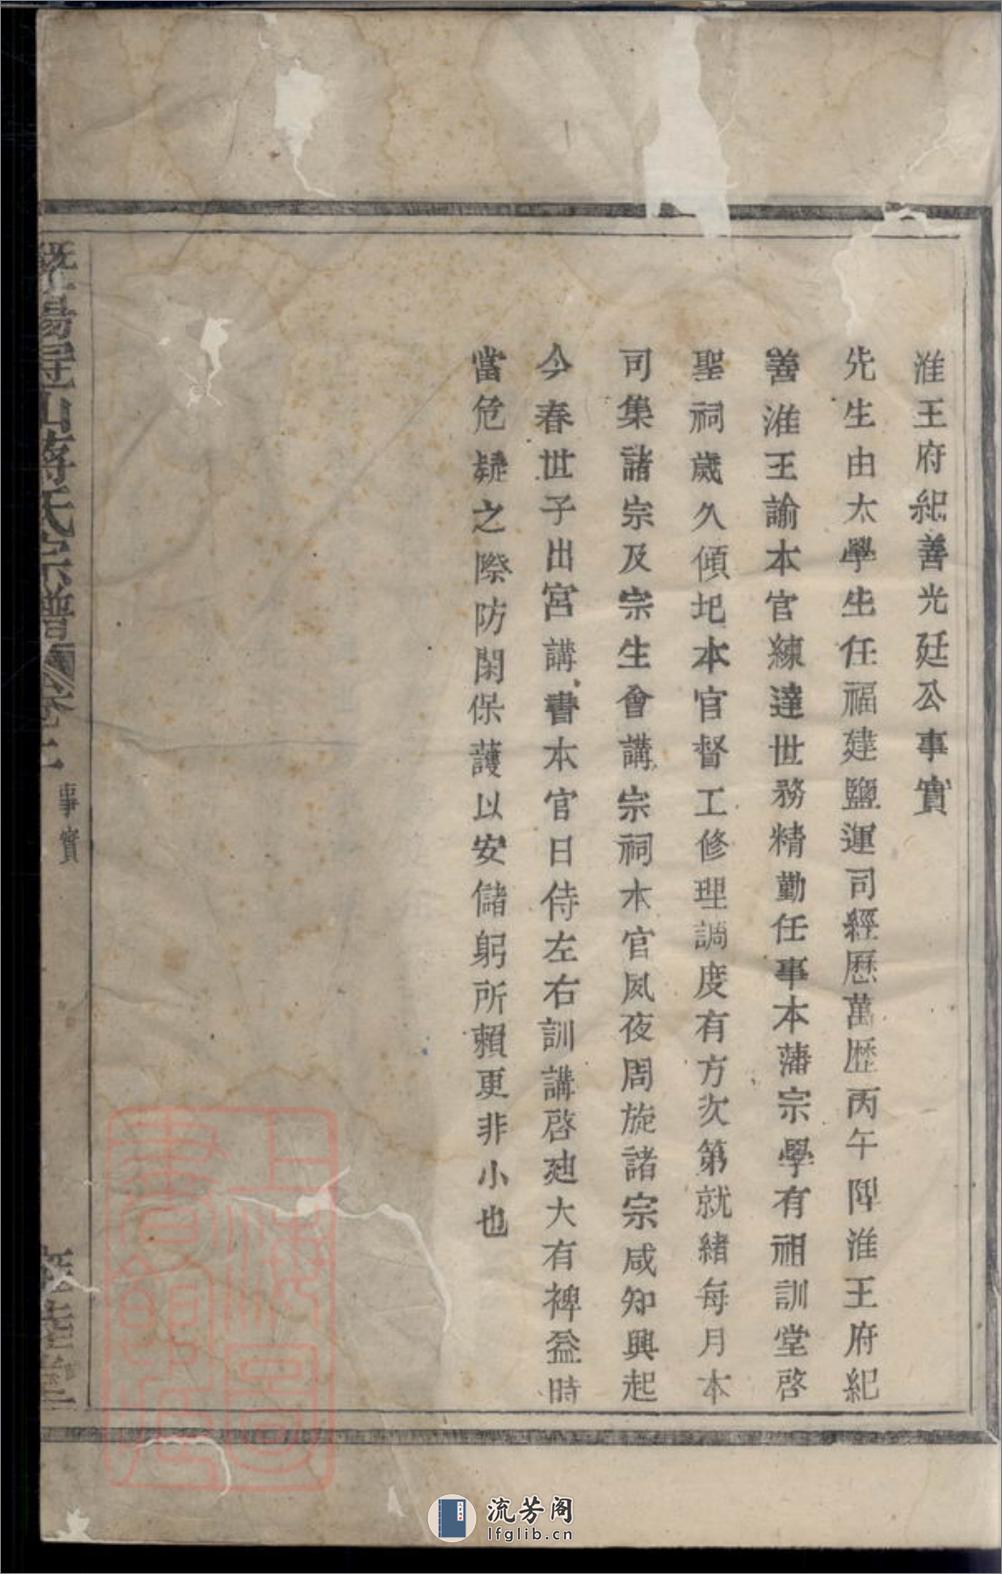 淮王府紀善光廷公事實
先生由太學生任福建鹽運司經歷萬歷丙午陞淮王府紀
善淮王諭本官練達世務精勤任事本藩宗學有祖訓堂啓
聖祠歲久傾圯本官督工修理調度有方次第就緒每月本
司集諸宗及宗生會講宗祠本官夙夜周旋諸宗咸知興起
今春世子出宮講書本官日侍左右訓講啓廸大有裨益時
當危疑之際防閑保護以安儲躬所賴更非小也
暨陽冠山蔣氏宗譜
事實
上海圖書館藏
流芳阁
lfglib.cn